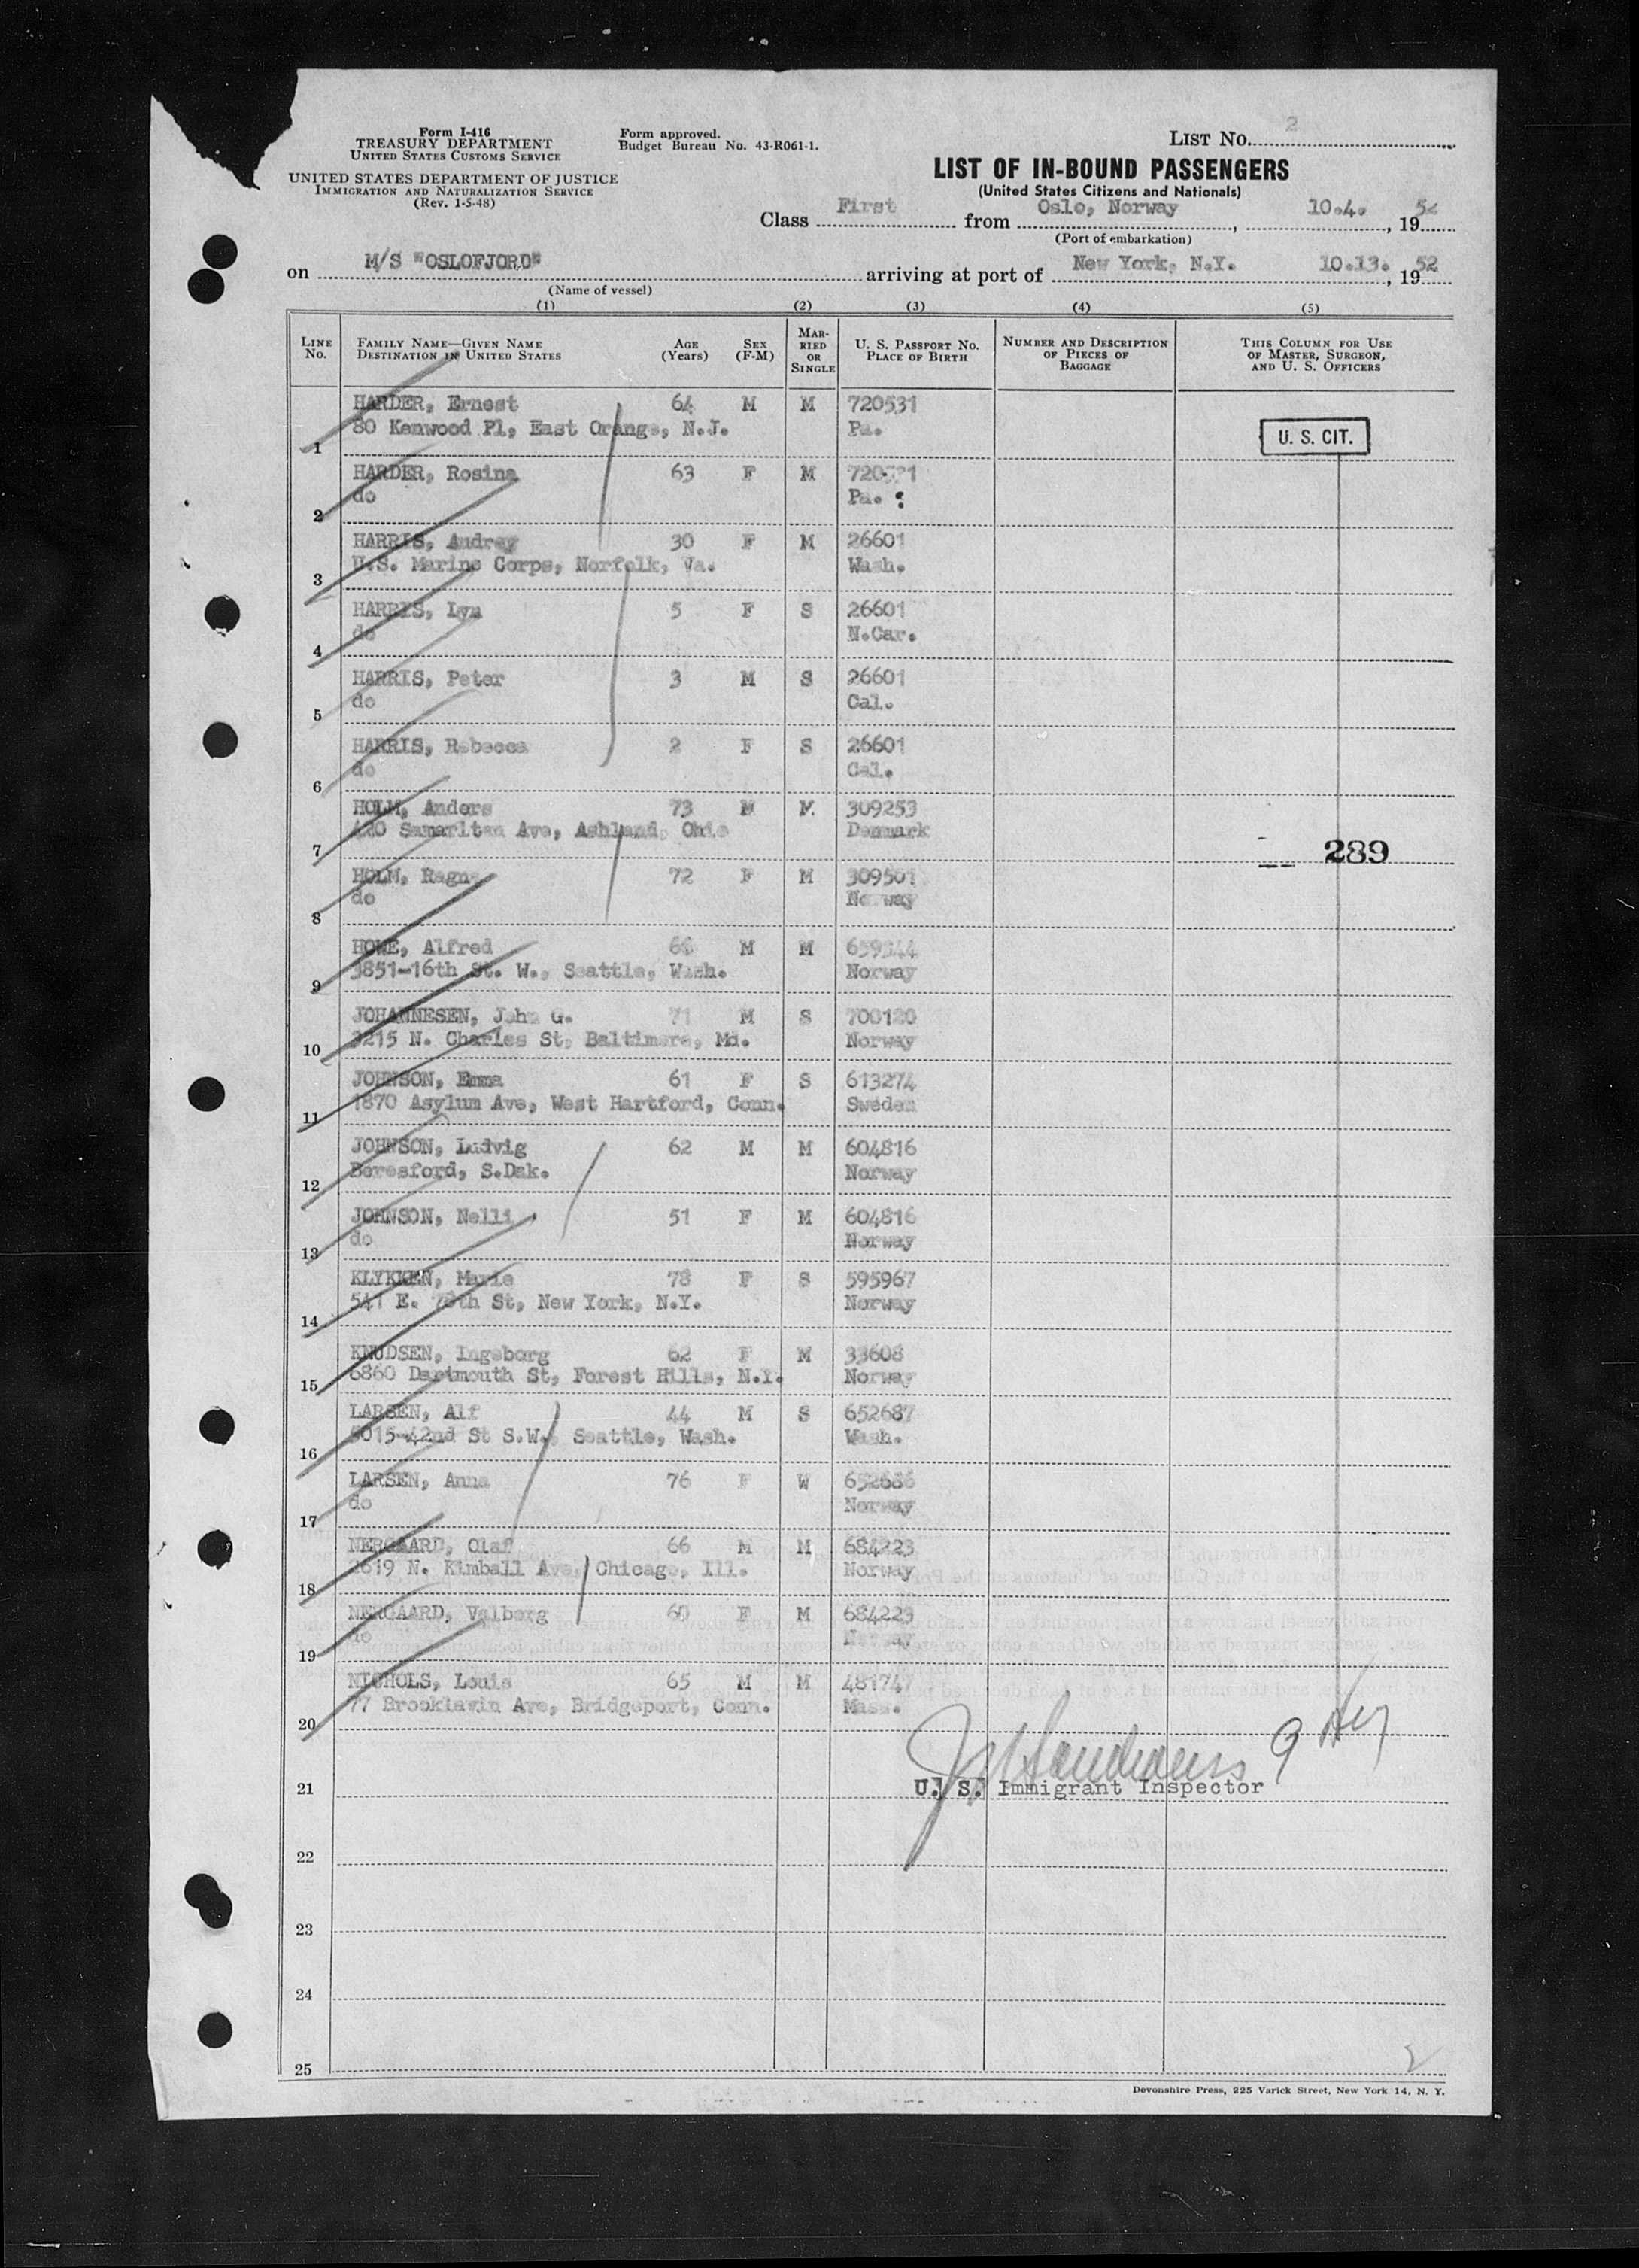 Form I-416
TREASURY DEPARTMENT
UNITED STATES CUSTOMS SERVICE
UNITED STATES DEPARTMENT OF JUSTICE
IMMIGRATION AND NATURALIZATION SERVICE
(Rev. 1-5-48)
Form approved.
Budget Bureau No. 43-R061-1.
LIST No. 2
LIST OF IN-BOUND PASSENGERS
(United States Citizens and Nationals)
Class First from Oslo, Norway, 10.4., 1952
(Port of embarkation)
on M/S "OSLOFJORD" arriving at port of New York, N.Y. 10.13., 1952
(Name of vessel)
(1) (2) (3) (4) (5)
LINE No. FAMILY NAME—GIVEN NAME DESTINATION IN UNITED STATES AGE (Years) SEX (F-M) MARRIED OR SINGLE U. S. PASSPORT No. PLACE OF BIRTH NUMBER AND DESCRIPTION OF PIECES OF BAGGAGE THIS COLUMN FOR USE OF MASTER, SURGEON, AND U. S. OFFICERS
HARDER, Ernest 64 M M 720531
1 80 Kenwood Pl, East Orange, N.J. Pa. U. S. CIT.
HARDER, Rosina 63 F M 720531
2 do Pa.
HARRIS, Audrey 30 F M 26601
3 U.S. Marine Corps, Norfolk, Va. Wash.
HARRIS, Lyn 5 F S 26601
4 do N.Car.
HARRIS, Peter 3 M S 26601
5 do Cal.
HARRIS, Rebecca 2 F S 26601
6 do Cal.
HOLM, Anders 73 M M 309253
7 420 Samaritan Ave, Ashland, Ohio Denmark 289
HOLM, Ragna 72 F M 309501
8 do Norway
HOWE, Alfred M M
9 3851-16th St. W., Seattle, Wash. Norway
JOHANNESEN, John G. 71 M S 700120
10 3215 N. Charles St, Baltimore, Md. Norway
JOHNSON, Emma 61 F S 613274
11 1870 Asylum Ave, West Hartford, Conn. Sweden
JOHNSON, Ludvig 62 M M 604816
12 Beresford, S.Dak. Norway
JOHNSON, Nelli 51 F M 604816
13 do Norway
KLYKKEN, Marie 78 F S 595967
14 541 E. 78th St, New York, N.Y. Norway
KNUDSEN, Ingeborg 62 F M 33608
15 6860 Dartmouth St, Forest Hills, N.Y. Norway
LARSEN, Alf 44 M S 652687
16 5015-42nd St S.W., Seattle, Wash. Wash.
LARSEN, Anna 76 F W 652686
17 do Norway
NERGAARD, Olaf 66 M M 684223
18 2619 N. Kimball Ave, Chicago, Ill. Norway
NERGAARD, Valborg 60 F M 684223
19 do Norway
NICHOLS, Louis 65 M M 481747
20 77 Brooklawn Ave, Bridgeport, Conn. Mass.
21 U. S. Immigrant Inspector
22
23
24
25
2
Devonshire Press, 225 Varick Street, New York 14, N. Y.